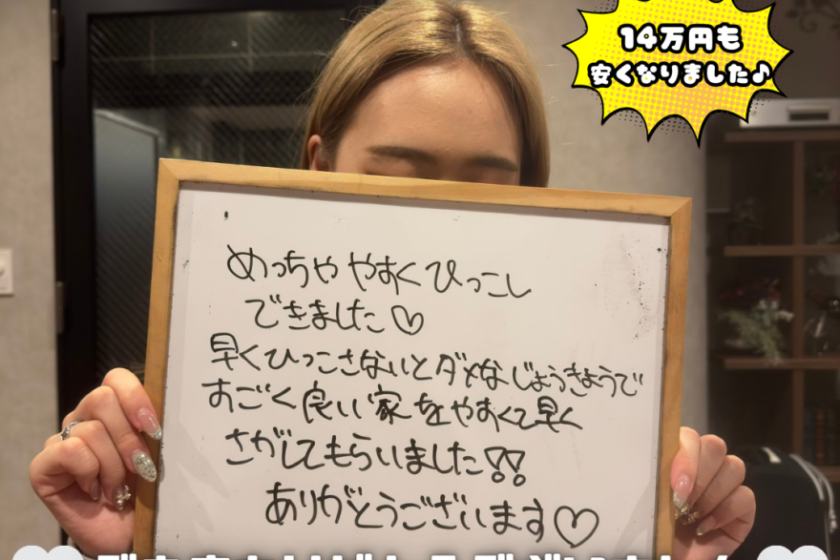 14万円も
安くなりました♪
めっちゃ やすく ひっこし
できました♡
早くひっこさないとダメなじょうきょうで
すごく良い家をやすくて早く
さがしてもらいました!!
ありがとうございます♡